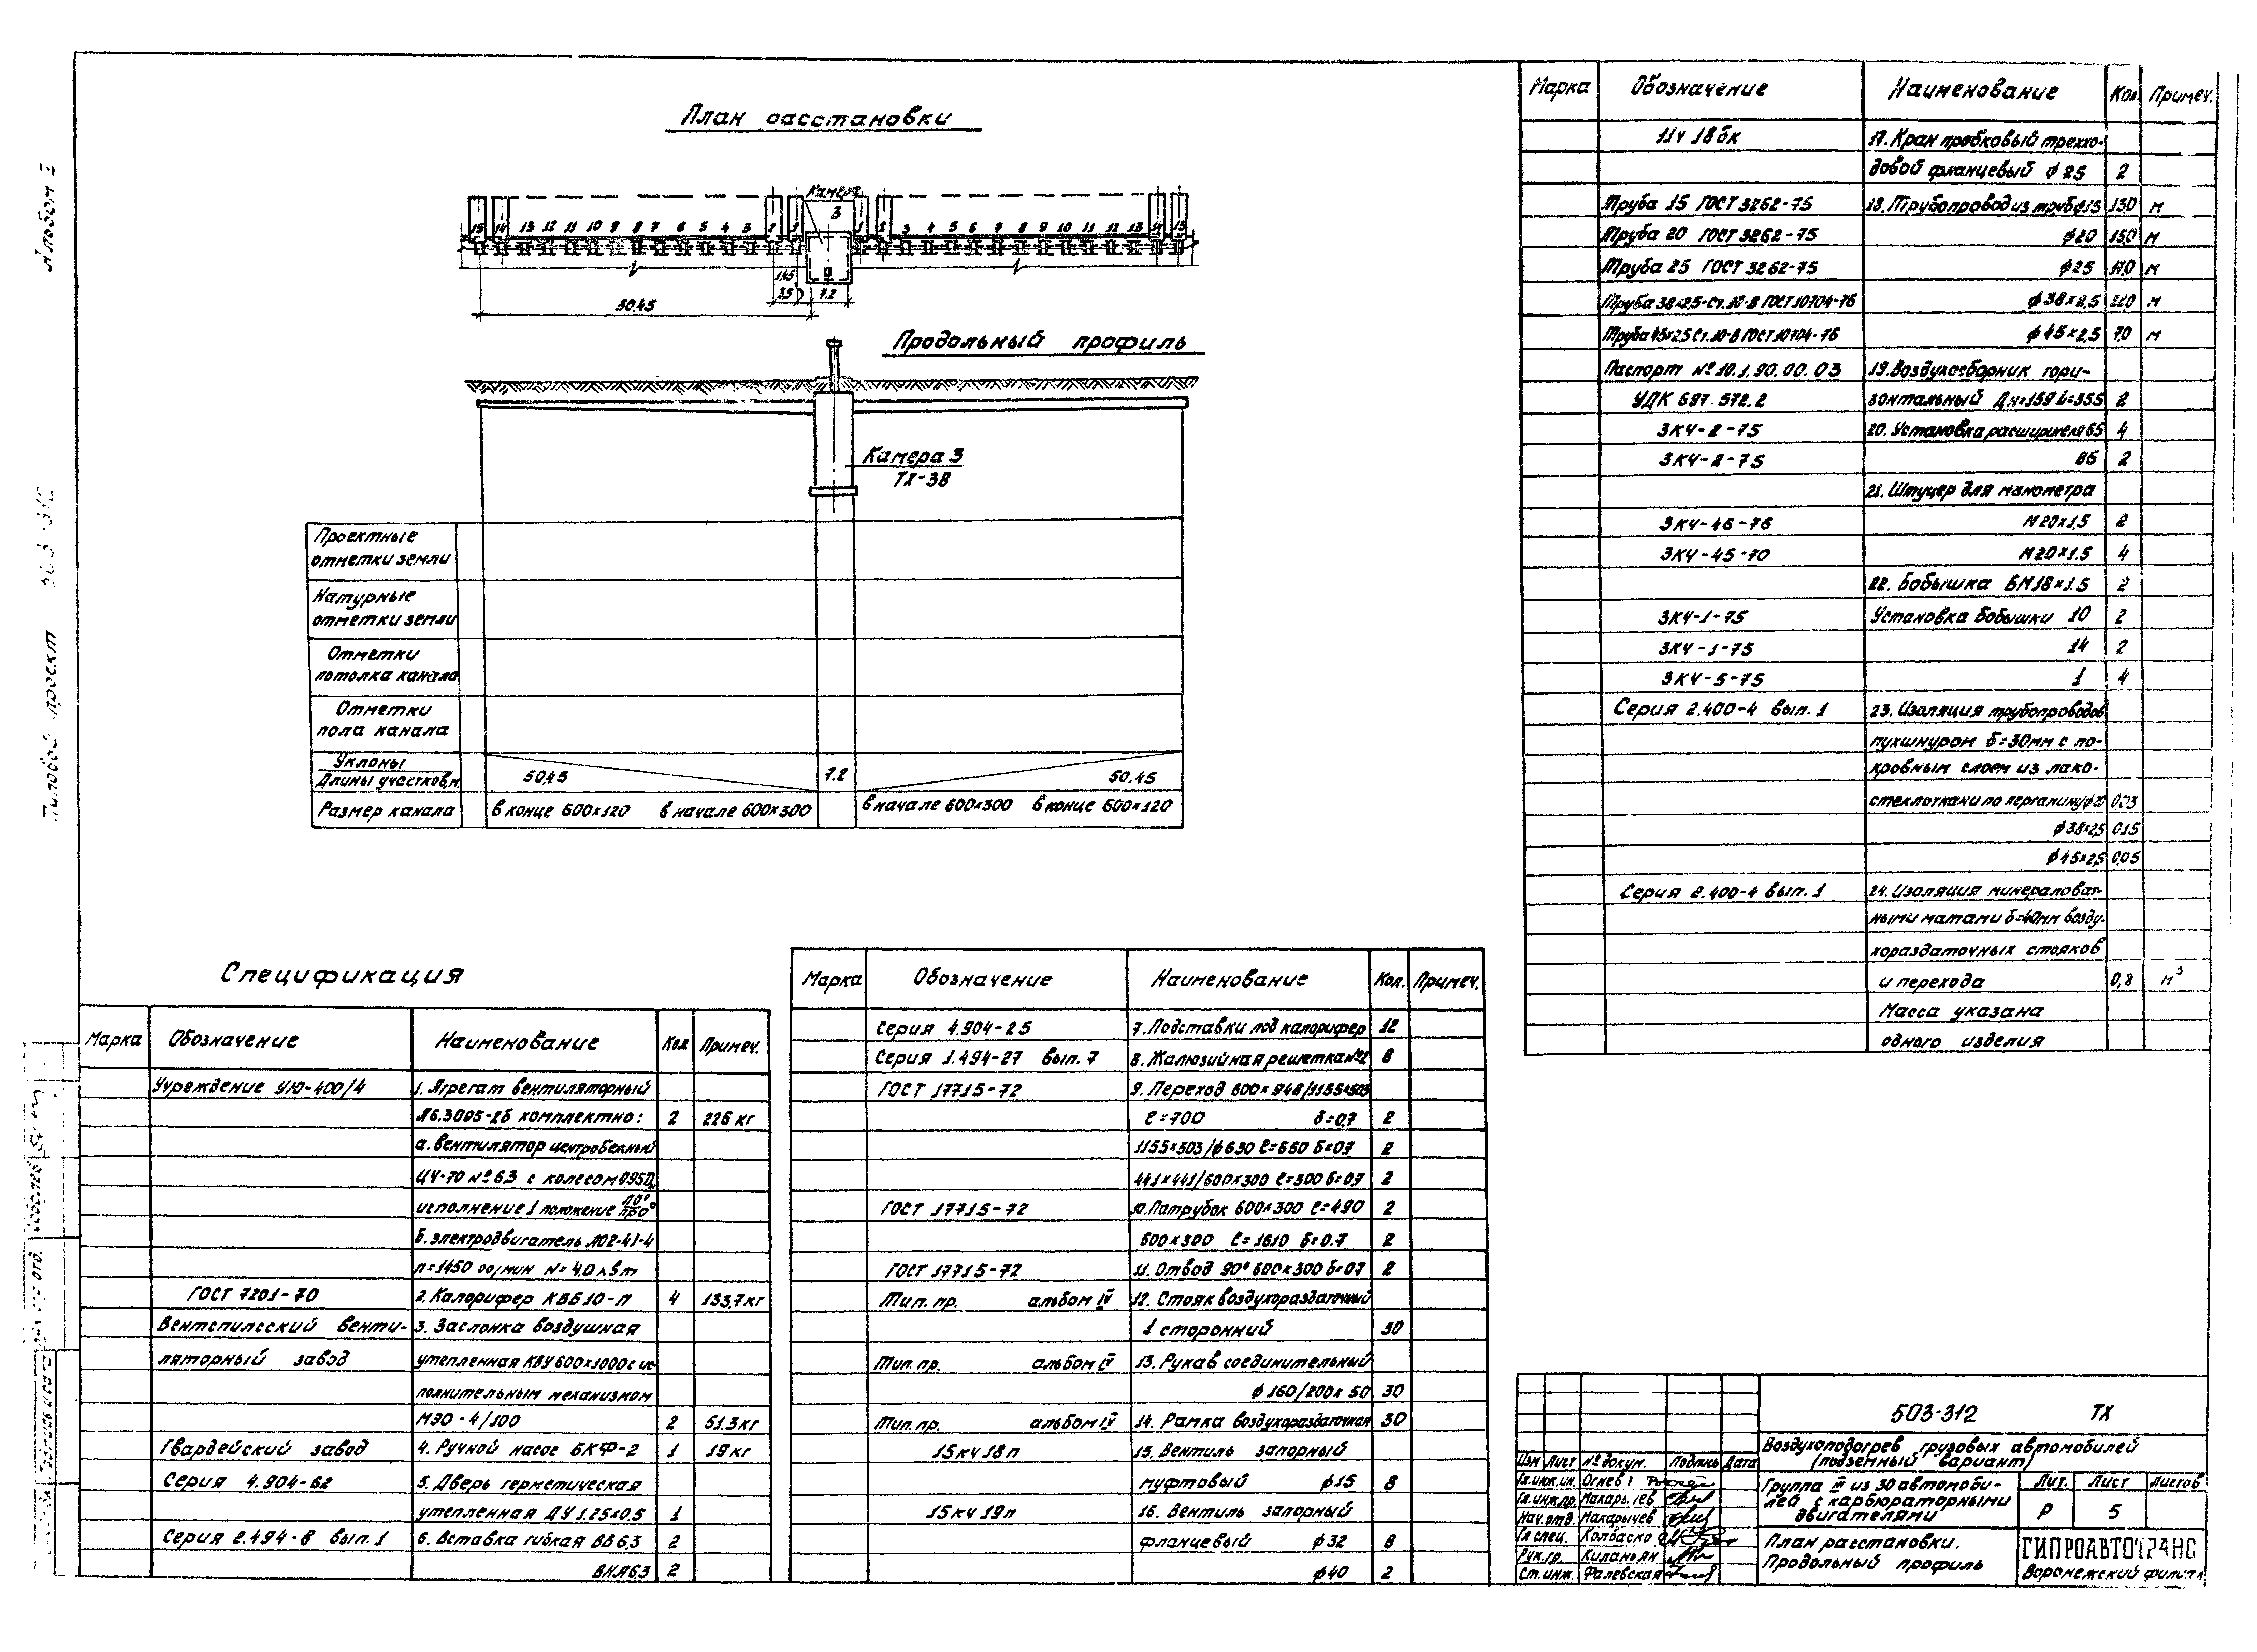 Альбом I
Типовой проект 503-312
План расстановки
Камера
3
15 14 13 12 11 10 9 8 7 6 5 4 3 2 1
1 2 3 4 5 6 7 8 9 10 11 12 13 14 15
1,45
3,5
7.2
50.45
Продольный профиль
Камера 3
ТХ-38
Проектные
отметки земли
Натурные
отметки земли
Отметки
потолка канала
Отметки
пола канала
Уклоны
Длины участков,м.
50,45 7.2 50.45
Размер канала в конце 600×120 в начале 600×300 в начале 600×300 в конце 600×120
Спецификация
Марка Обозначение Наименование Кол Примеч.
Учреждение УЮ-400/4 1. Агрегат вентиляторный
А6.3095-2б комплектно: 2 226 кг
а. вентилятор центробежный
Ц4-70 №6,3 с колесом 0,95Dн
исполнение 1 положение Л0°/ПР0°
б. электродвигатель АО2-41-4
n=1450 об/мин N=4,0 кВт
ГОСТ 7201-70 2. Калорифер КВБ10-П 4 133,7кг
Вентспилсский венти- 3. Заслонка воздушная
ляторный завод утепленная КВУ 600×1000 с ис-
полнительным механизмом
МЭО-4/100 2 51.3кг
Гвардейский завод 4. Ручной насос БКФ-2 1 19кг
Серия 4.904-62 5. Дверь герметическая
утепленная ДУ 1.25×0,5 1
Серия 2.494-8 вып.1 6. Вставка гибкая ВВ 6,3 2
ВНА6,3 2
Марка Обозначение Наименование Кол. Примеч.
Серия 4.904-25 7. Подставки под калорифер 12
Серия 1.494-27 вып. 7 8. Жалюзийная решетка №2 8
ГОСТ 17715-72 9. Переход 600×948/1155×503
ℓ=700 δ=0,7 2
1155×503/ϕ630 ℓ=650 δ=0,7 2
441×441/600×300 ℓ=300 δ=0,7 2
ГОСТ 17715-72 10. Патрубок 600×300 ℓ=490 2
600×300 ℓ=1610 δ=0.7 2
ГОСТ 17715-72 11. Отвод 90° 600×300 δ=0,7 2
Тип. пр. альбом IV 12. Стояк воздухораздаточный
1 сторонний 30
Тип. пр. альбом IV 13. Рукав соединительный
ϕ160/200×50 30
Тип. пр. альбом IV 14. Рамка воздухораздаточная 30
15кч18п 15. Вентиль запорный
муфтовый ϕ15 8
15кч19п 16. Вентиль запорный
фланцевый ϕ32 8
ϕ40 2
Марка Обозначение Наименование Кол. Примеч.
11ч 18бк 17. Кран пробковый треххо-
довой фланцевый ϕ25 2
Труба 15 ГОСТ 3262-75 18. Трубопровод из труб ϕ15 13,0 м
Труба 20 ГОСТ 3262-75 ϕ20 15,0 м
Труба 25 ГОСТ 3262-75 ϕ25 м
Труба 38×2,5-Ст.10-В ГОСТ 10704-76 ϕ38×2,5 м
Труба 45×2,5 Ст.10-В ГОСТ 10704-76 ϕ45×2,5 7,0 м
Паспорт №10.1.90.00.03 19. Воздухосборник гори-
УДК 697.572.2 зонтальный Дн=159 L=355 2
ЗКЧ-2-75 20. Установка расширителя 65 4
ЗКЧ-2-75 86 2
21. Штуцер для манометра
ЗКЧ-46-76 М20×1,5 2
ЗКЧ-45-70 М20×1.5 4
22. Бобышка БМ18×1.5 2
ЗКЧ-1-75 Установка бобышки 10 2
ЗКЧ-1-75 14 2
ЗКЧ-5-75 1 4
Серия 2.400-4 вып. 1 23. Изоляция трубопроводов
пухшнуром δ=30мм с по-
кровным слоем из лако-
стеклоткани по пергамину ϕ20 0,03
ϕ38×2,5 0,15
ϕ45×2,5 0,05
Серия 2.400-4 вып. 1 24. Изоляция минераловат-
ными матами δ=40мм возду-
хораздаточных стояков
и перехода 0,8 м³
Масса указана
одного изделия
503-312 ТХ
Воздухоподогрев грузовых автомобилей
(подземный вариант)
Изм Лист № докум. Подпись Дата
Гл.инж.ин. Огнев
Гл.инж.пр. Макарычев
Нач.отд. Макарычев
Гл спец. Колбаско
Рук.гр. Киламьян
Ст.инж. Фалевская
Группа III из 30 автомоби-
лей с карбюраторными
двигателями
Лит. Лист Листов
Р 5
План расстановки.
Продольный профиль
ГИПРОАВТОТРАНС
Воронежский филиал